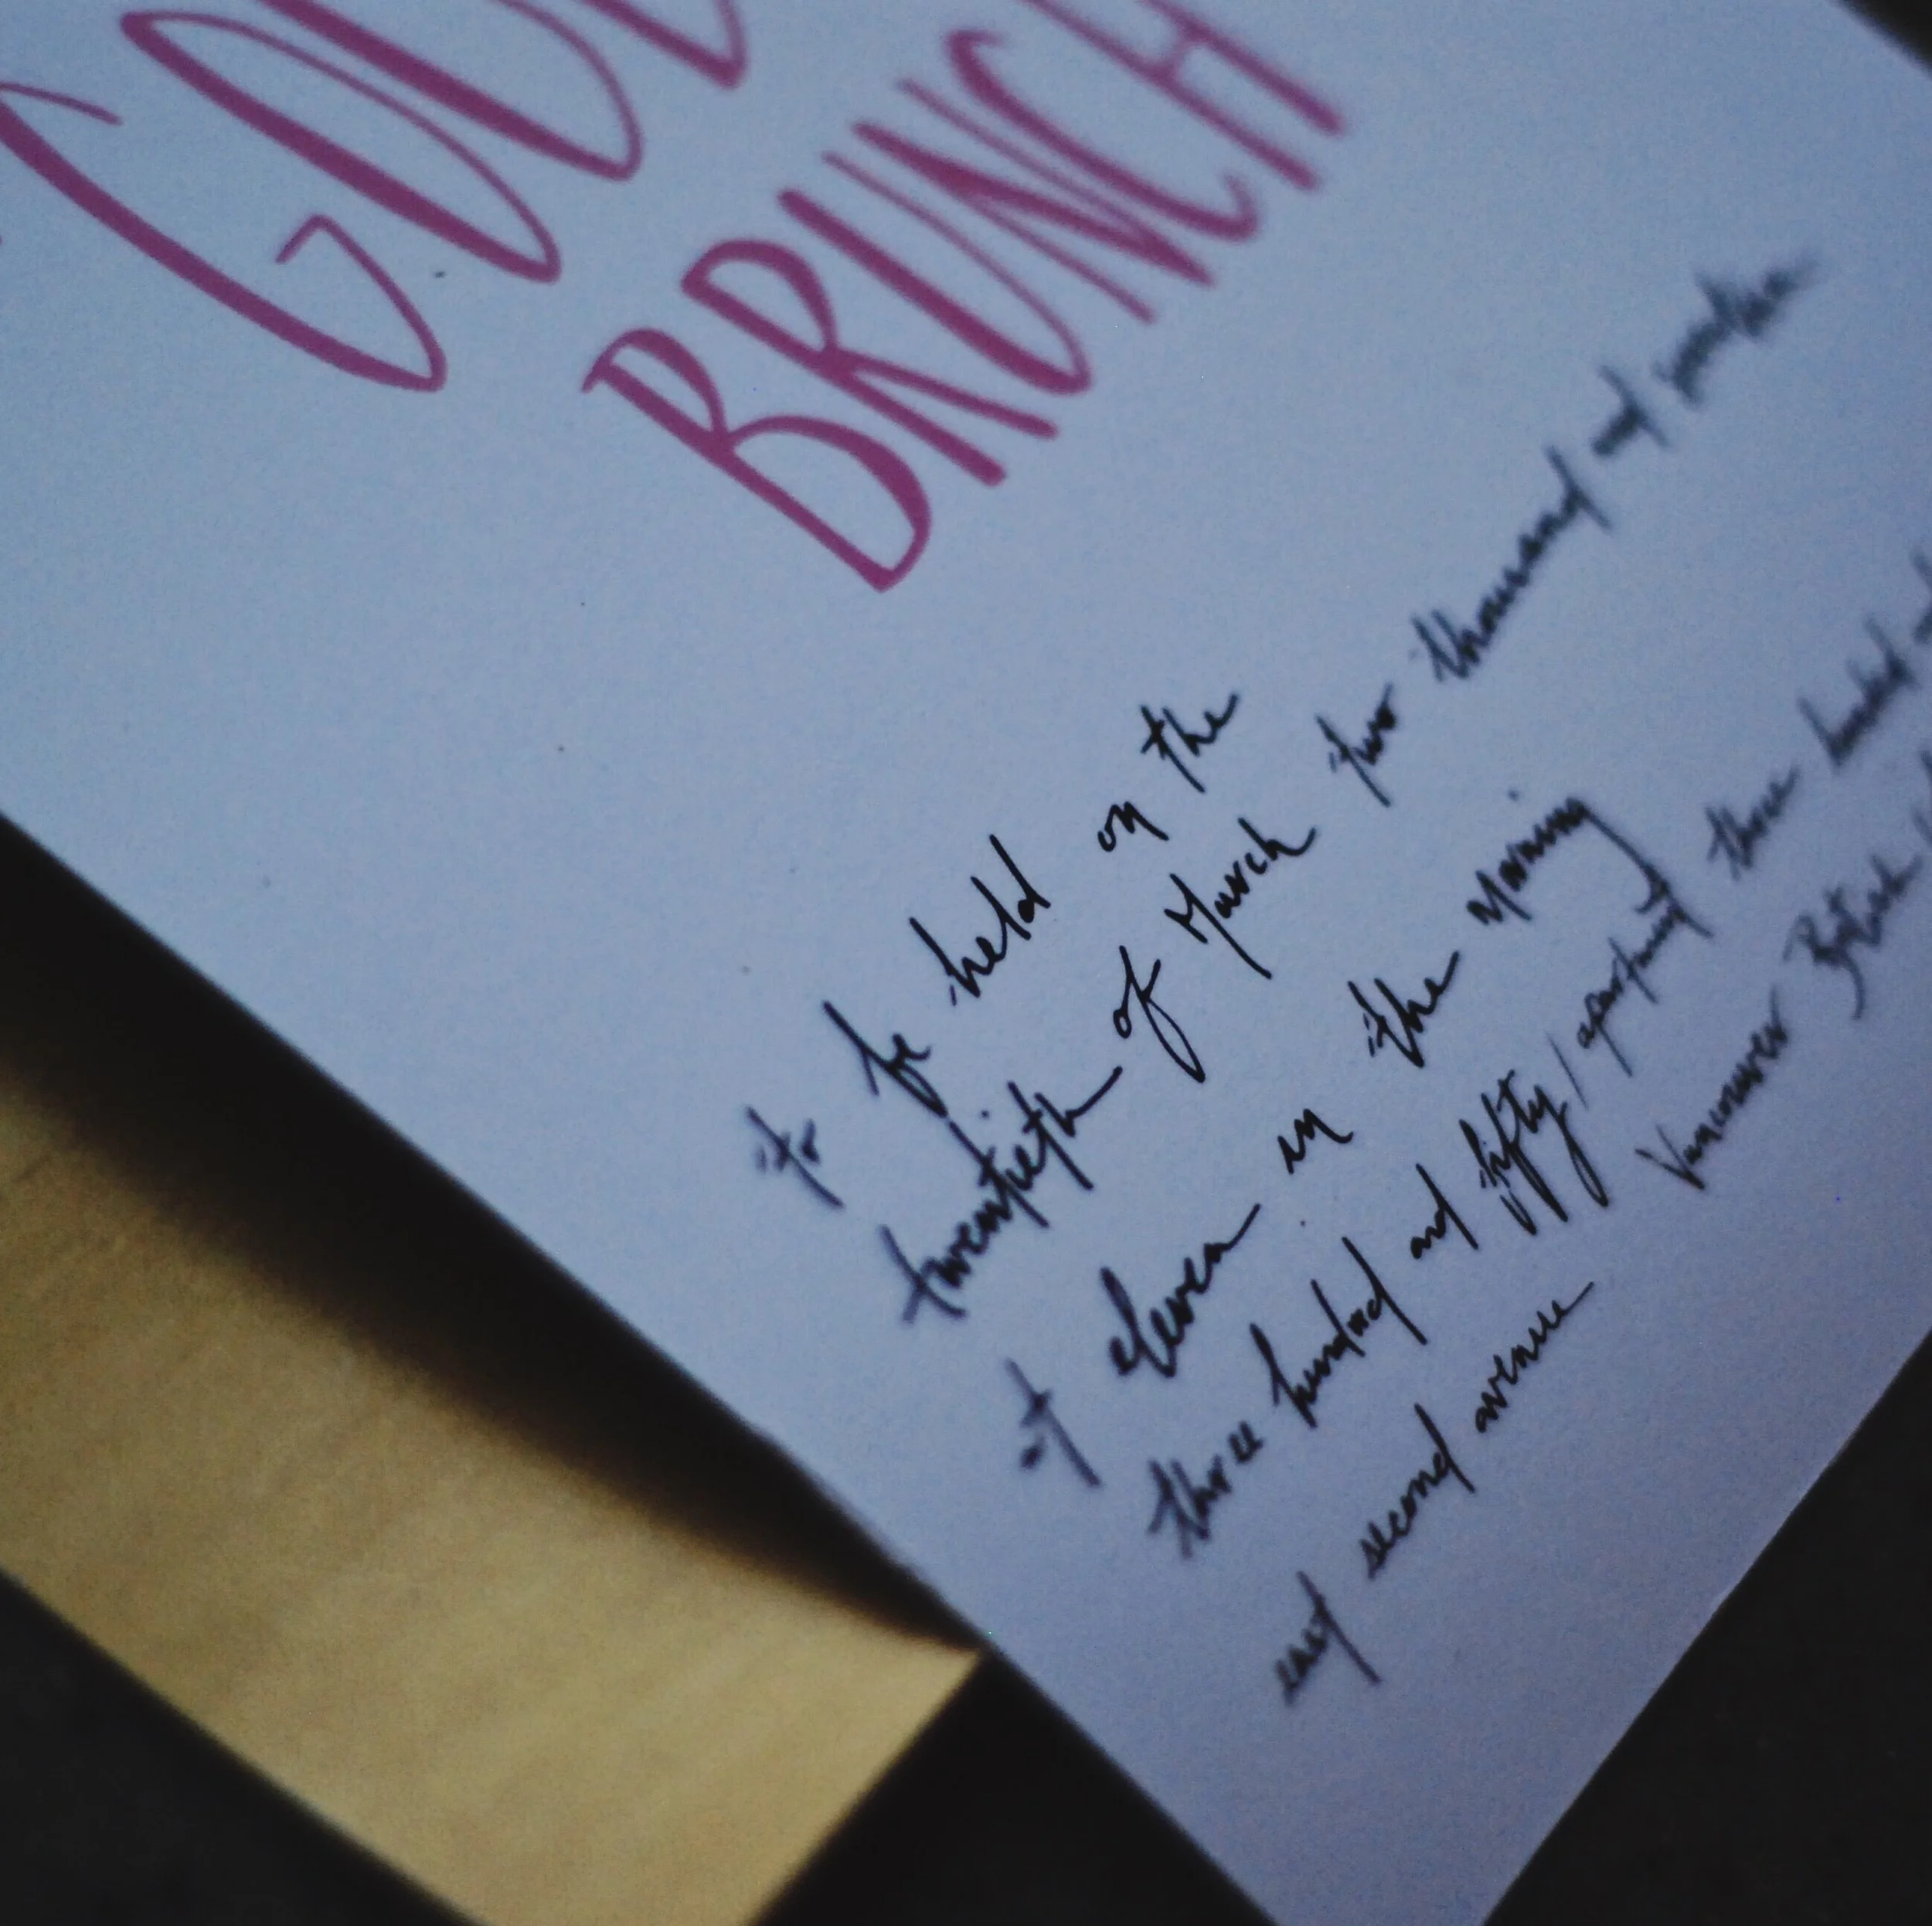 GOOD
BRUNCH
to be held on the
twentieth of March two thousand and
at eleven in the Morning
three hundred and fifty / apartment three hundred
east second avenue Vancouver British